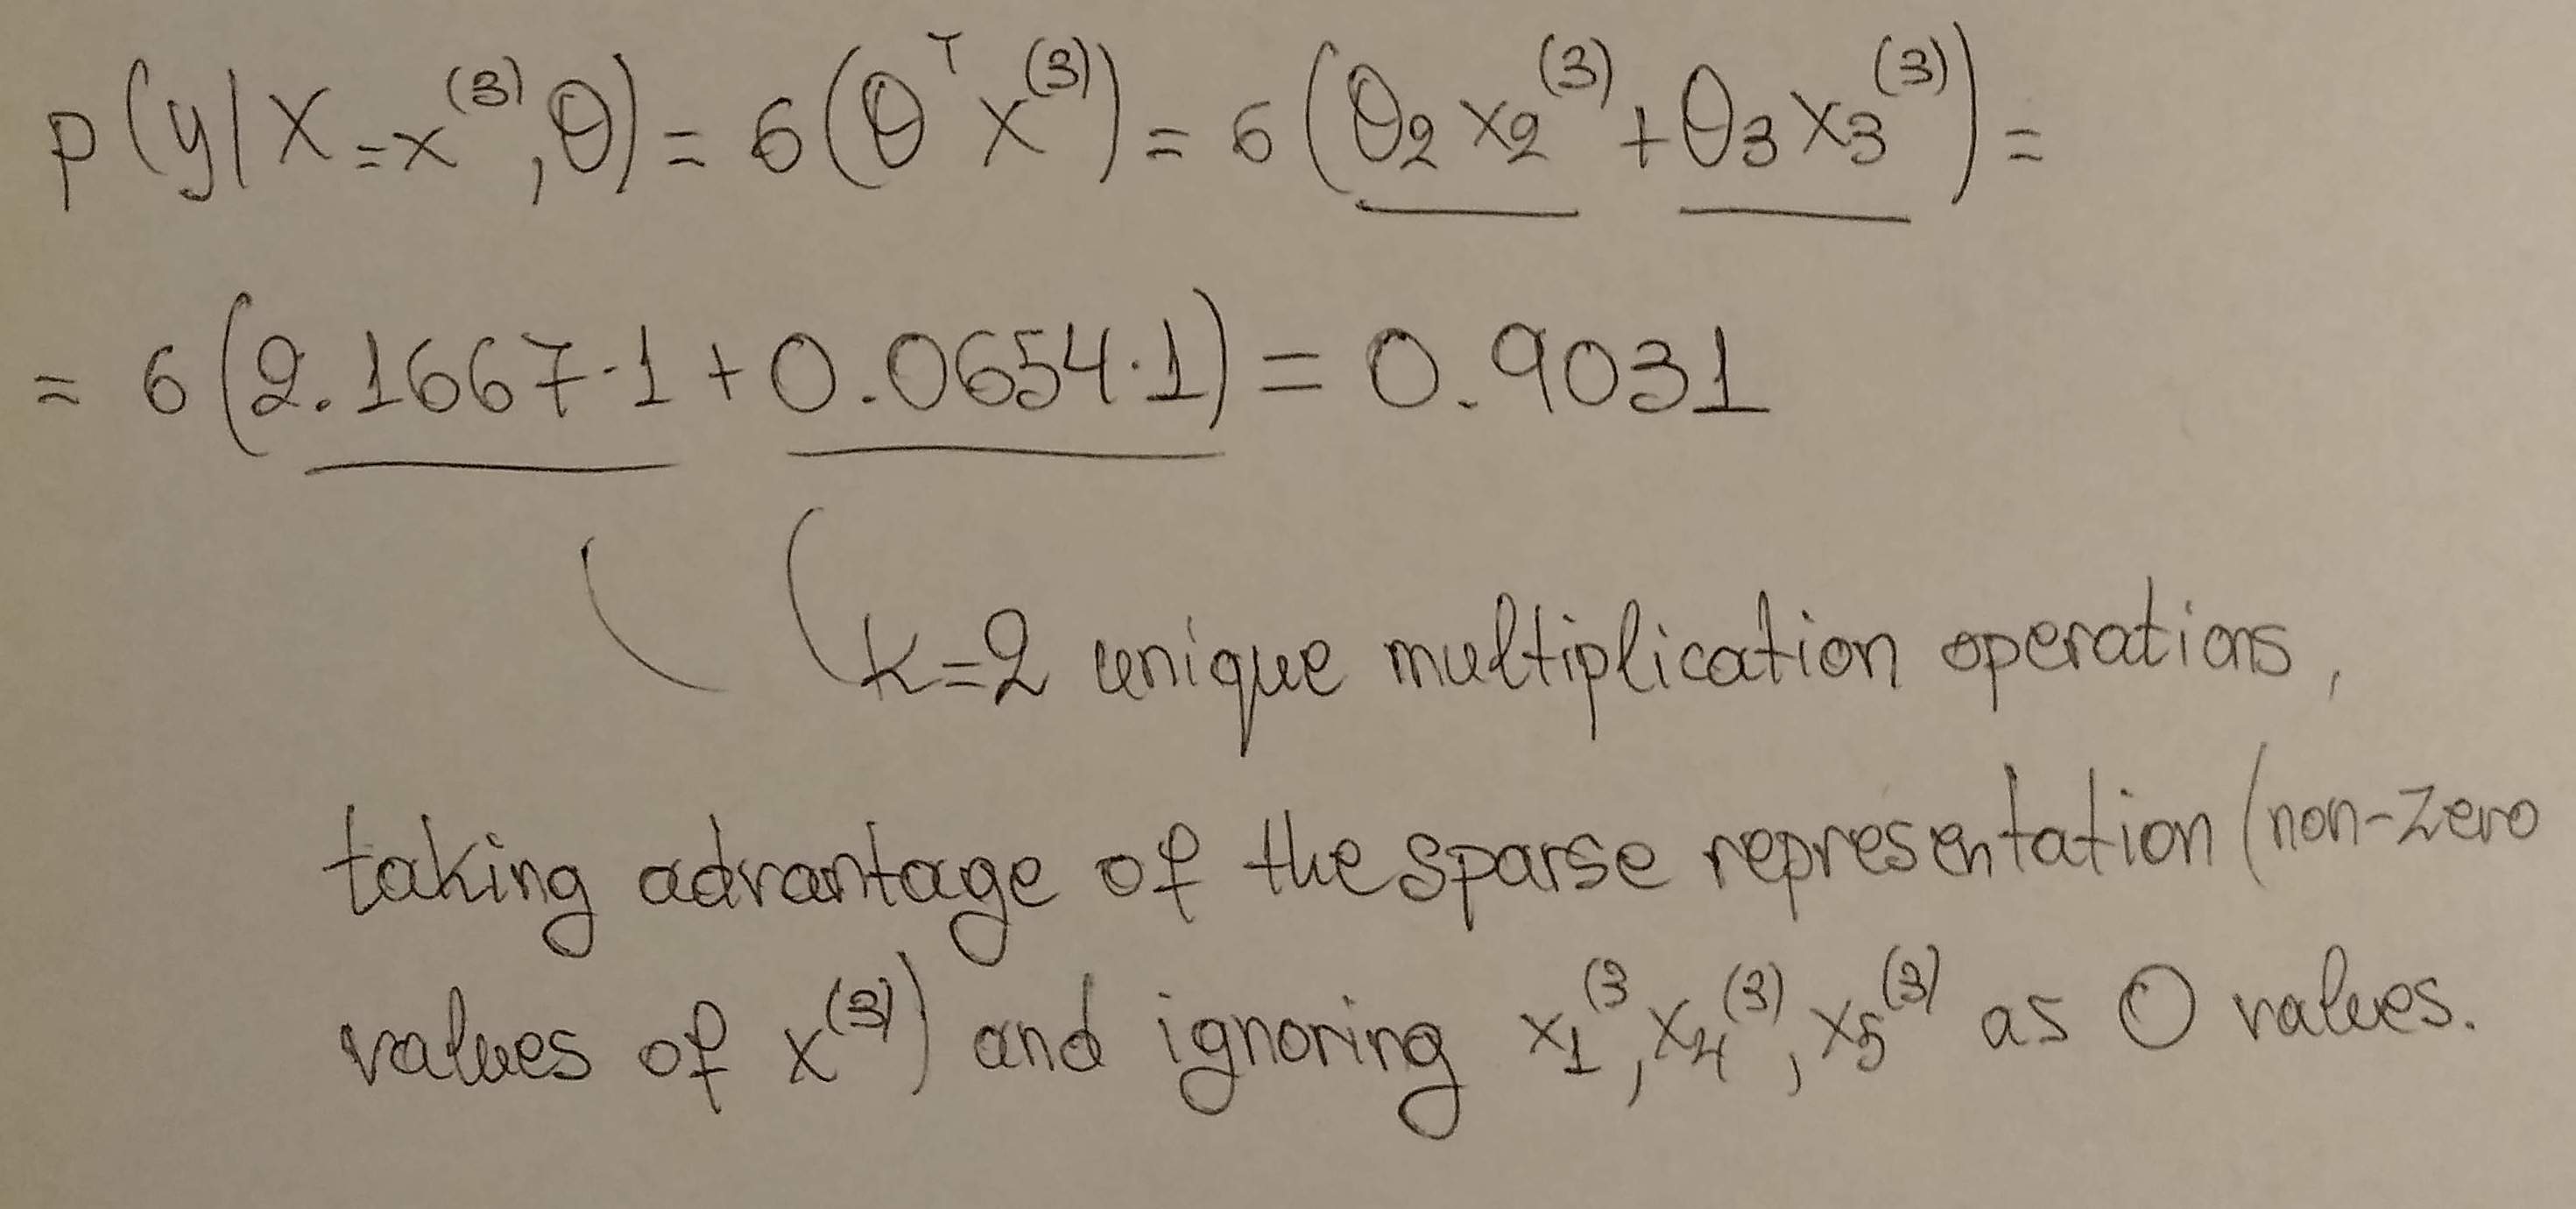 p(y|X=x^(3),θ)=σ(θ^T x^(3))=σ(θ₂x₂^(3)+θ₃x₃^(3))=
=σ(2.1667·1+0.0654·1)=0.9031
k=2 unique multiplication operations,
taking advantage of the sparse representation (non-zero
values of x^(3)) and ignoring x₁^(3, x₄^(3), x₅^(3) as 0 values.